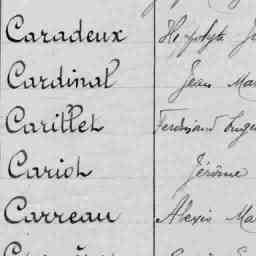 Caradeux Hippolyte
Cardinal Jean
Carillet Ferdinand
Cariot Jérôme
Carreau Alexis